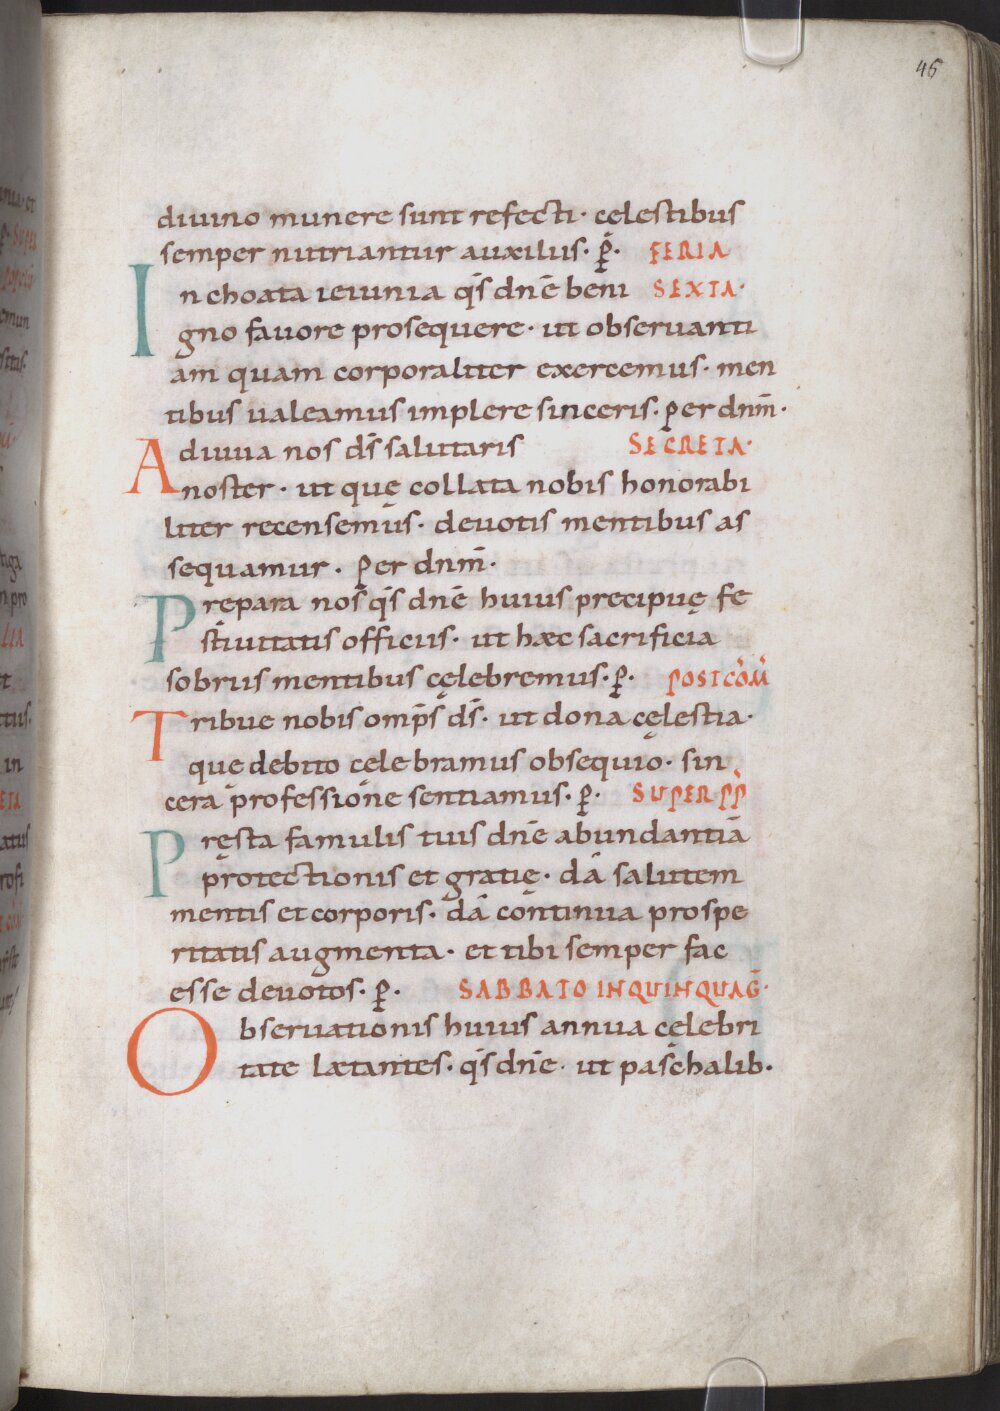 46
diuino munere sunt refecti · cęlestibus
semper nutriantur auxiliis · p̄ · FERIA
Inchoata ieiunia q̄s dn̄e beni SEXTA ·
gno fauore prosequere · ut obseruanti
am quam corporaliter exercemus · men
tibus ualeamus implere sinceris · Per dnm̄ ·
Adiuua nos ds̄ salutaris SECRETA ·
noster · ut quę collata nobis honorabi
liter recensemus · deuotis mentibus as
sequamur · Per dnm̄ ·
Prepara nos q̄s dn̄e huius precipuę fe
stiuitatis officiis · ut hæc sacrificia
sobriis mentibus cęlebremus · p̄ · POSTCOM̄
Tribue nobis omp̄s ds̄ · ut dona cęlestia ·
que debito cęlebramus obsequio · sin
cera professione sentiamus · p̄ · SUPER PP̄
Pręsta famulis tuis dn̄e abundantiā
protectionis et gratię · da salutem
mentis et corporis · da continua prospe
ritatis augmenta · et tibi semper fac
esse deuotos · p̄ · SABBATO IN QUINQUAḠ ·
Obseruationis huius annua cęlebri
tate lætantes · q̄s dn̄e · ut paschalib ·